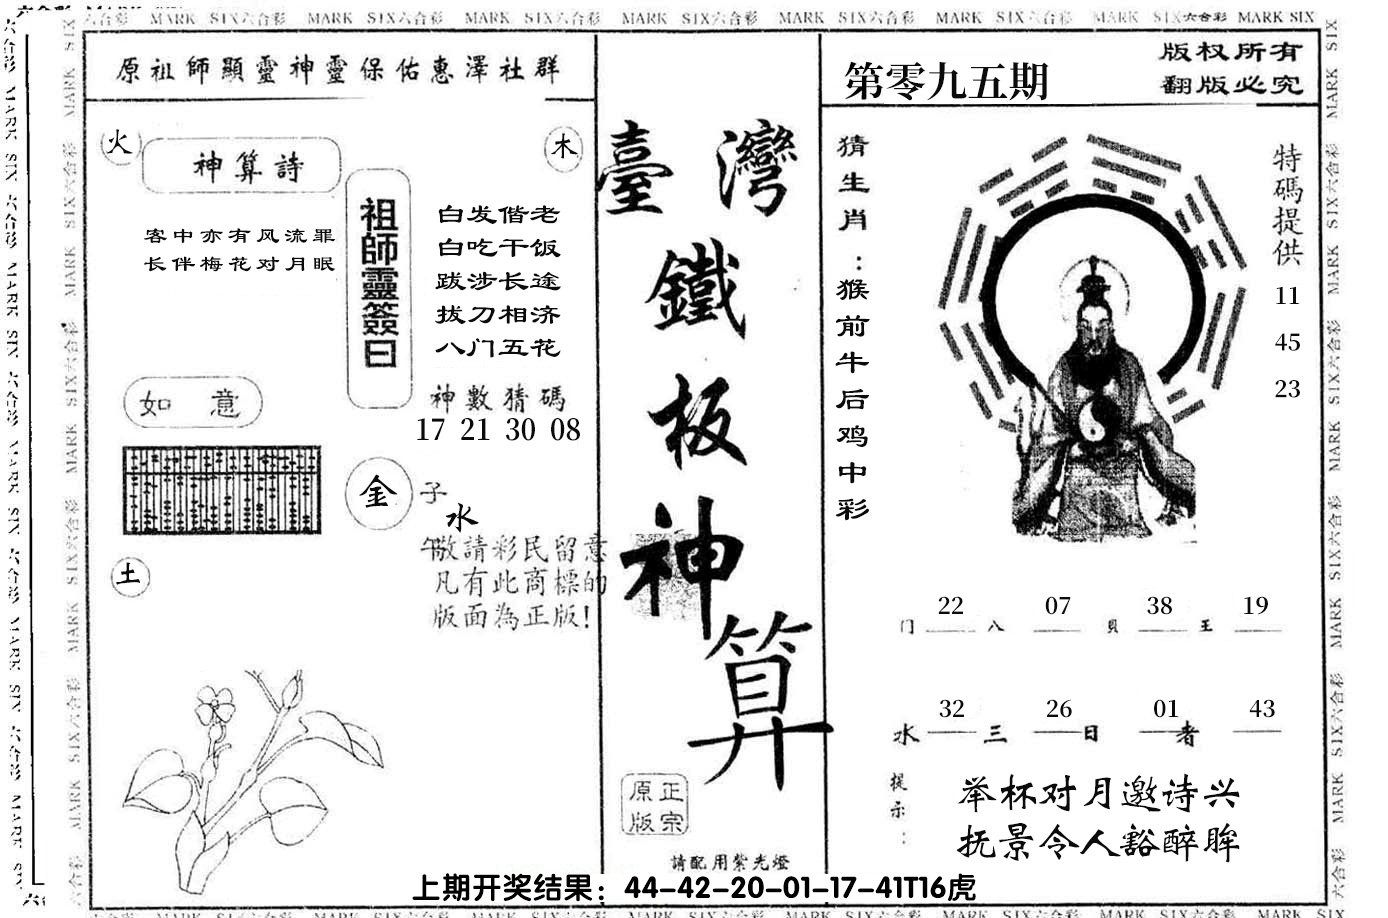 MARK SIX六合彩 MARK SIX六合彩 MARK SIX六合彩 MARK SIX六合彩 MARK SIX六合彩 MARK SIX六合彩 MARK SIX六合彩 MARK SIX
原祖師顯靈神靈保佑惠澤社群
火
神算詩
木
客中亦有风流罪
长伴梅花对月眠
祖師靈簽曰
白发偕老
白吃干饭
跋涉长途
拔刀相济
八门五花
神數猜碼
17 21 30 08
如 意
金
子
水
午
敬請彩民留意
凡有此商標的
版面為正版!
土
臺灣
鐵
板
神
算
正宗
原版
請配用紫光燈
第零九五期
版权所有
翻版必究
猜生肖：猴前牛后鸡中彩
特碼提供
11
45
23
22 07 38 19
门 八 貝 王
32 26 01 43
水 三 日 者
提示：
举杯对月邀诗兴
抚景令人豁醉眸
上期开奖结果：44-42-20-01-17-41T16虎